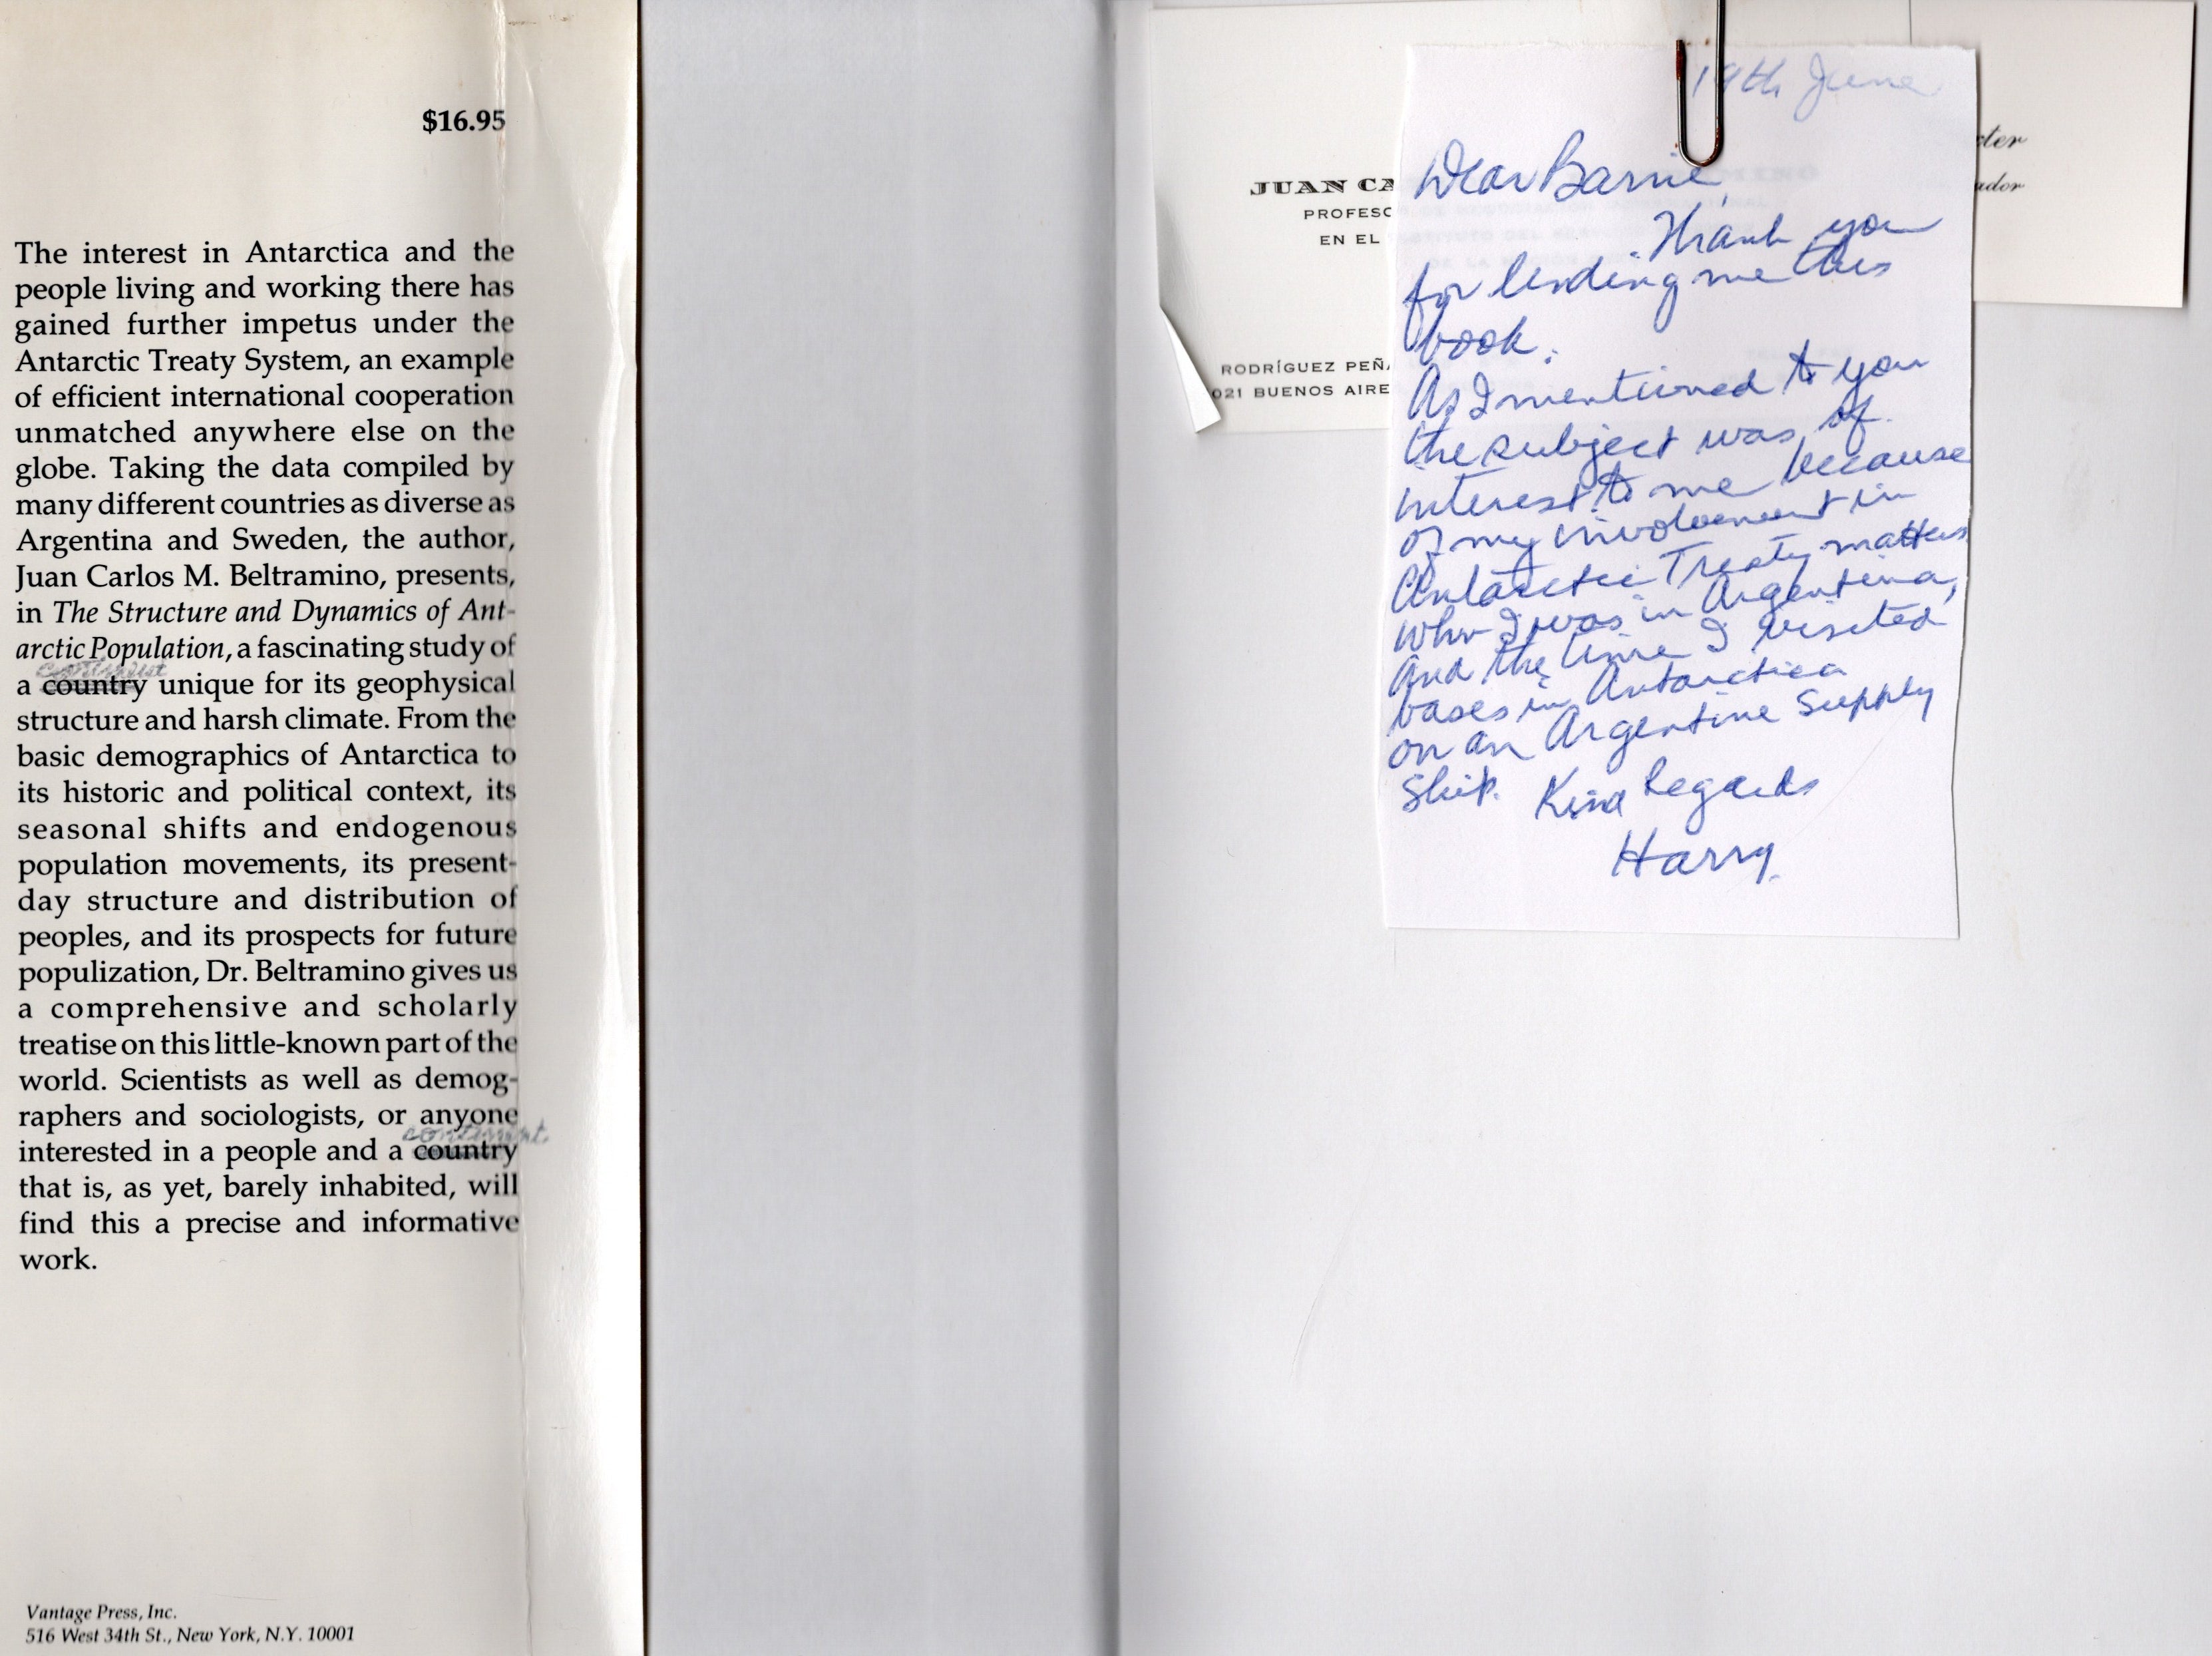 $16.95
The interest in Antarctica and the
people living and working there has
gained further impetus under the
Antarctic Treaty System, an example
of efficient international cooperation
unmatched anywhere else on the
globe. Taking the data compiled by
many different countries as diverse as
Argentina and Sweden, the author,
Juan Carlos M. Beltramino, presents,
in The Structure and Dynamics of Ant-
arctic Population, a fascinating study of
continent
a country unique for its geophysical
structure and harsh climate. From the
basic demographics of Antarctica to
its historic and political context, its
seasonal shifts and endogenous
population movements, its present-
day structure and distribution of
peoples, and its prospects for future
populization, Dr. Beltramino gives us
a comprehensive and scholarly
treatise on this little-known part of the
world. Scientists as well as demog-
raphers and sociologists, or anyone
continent.
interested in a people and a country
that is, as yet, barely inhabited, will
find this a precise and informative
work.
Vantage Press, Inc.
516 West 34th St., New York, N.Y. 10001
JUAN CA
PROFESO
EN EL
RODRÍGUEZ PEÑA
021 BUENOS AIRE
19th June
Dear Barrie,
Thank you
for lending me this
book.
As I mentioned to you
the subject was of
interest to me because
of my involvement in
Antarctic Treaty matters
when I was in Argentina,
and the time I visited
bases in Antarctica
on an Argentine Supply
Ship. Kind Regards
Harry.
xter
ador